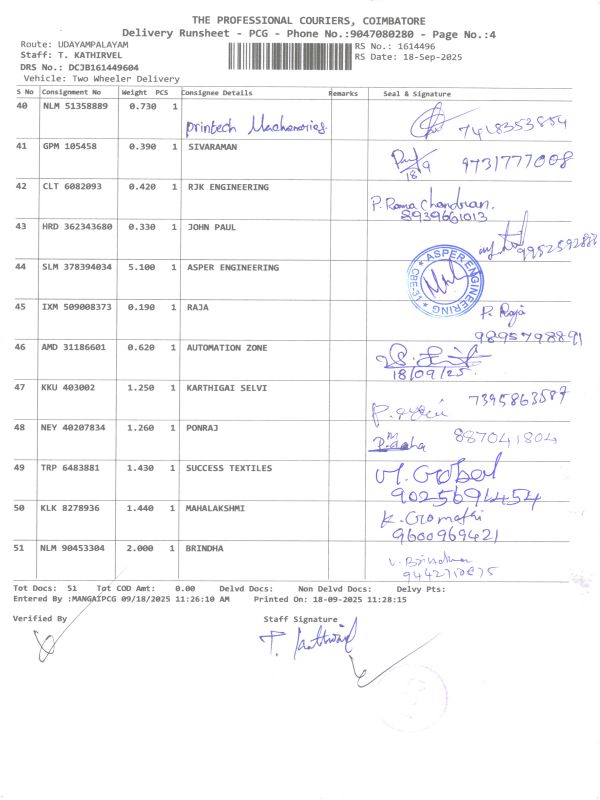 THE PROFESSIONAL COURIERS, COIMBATORE
Delivery Runsheet - PCG - Phone No.:9047080280 - Page No.:4
Route: UDAYAMPALAYAM RS No.: 1614496
Staff: T. KATHIRVEL RS Date: 18-Sep-2025
DRS No.: DCJB161449604
Vehicle: Two Wheeler Delivery
S No Consignment No Weight PCS Consignee Details Remarks Seal & Signature
40 NLM 51358889 0.730 1 Printech Machenories 7418353854
41 GPM 105458 0.390 1 SIVARAMAN 18/9 9731777008
42 CLT 6082093 0.420 1 RJK ENGINEERING P. Rama chandran. 8939661013
43 HRD 362343680 0.330 1 JOHN PAUL
44 SLM 378394034 5.100 1 ASPER ENGINEERING ASPER ENGINEERING CBE-31
45 IXM 509008373 0.190 1 RAJA P. Raja 9895798891
46 AMD 31186601 0.620 1 AUTOMATION ZONE 18/09/25.
47 KKU 403002 1.250 1 KARTHIGAI SELVI 7395863587
48 NEY 40207834 1.260 1 PONRAJ 887041804
49 TRP 6483881 1.430 1 SUCCESS TEXTILES M. Gobal 9025694454
50 KLK 8278936 1.440 1 MAHALAKSHMI K. Gomathi 9600969421
51 NLM 90453304 2.000 1 BRINDHA V. Brindha
Tot Docs: 51 Tot COD Amt: 0.00 Delvd Docs: Non Delvd Docs: Delvy Pts:
Entered By :MANGAIPCG 09/18/2025 11:26:10 AM Printed On: 18-09-2025 11:28:15
Verified By Staff Signature